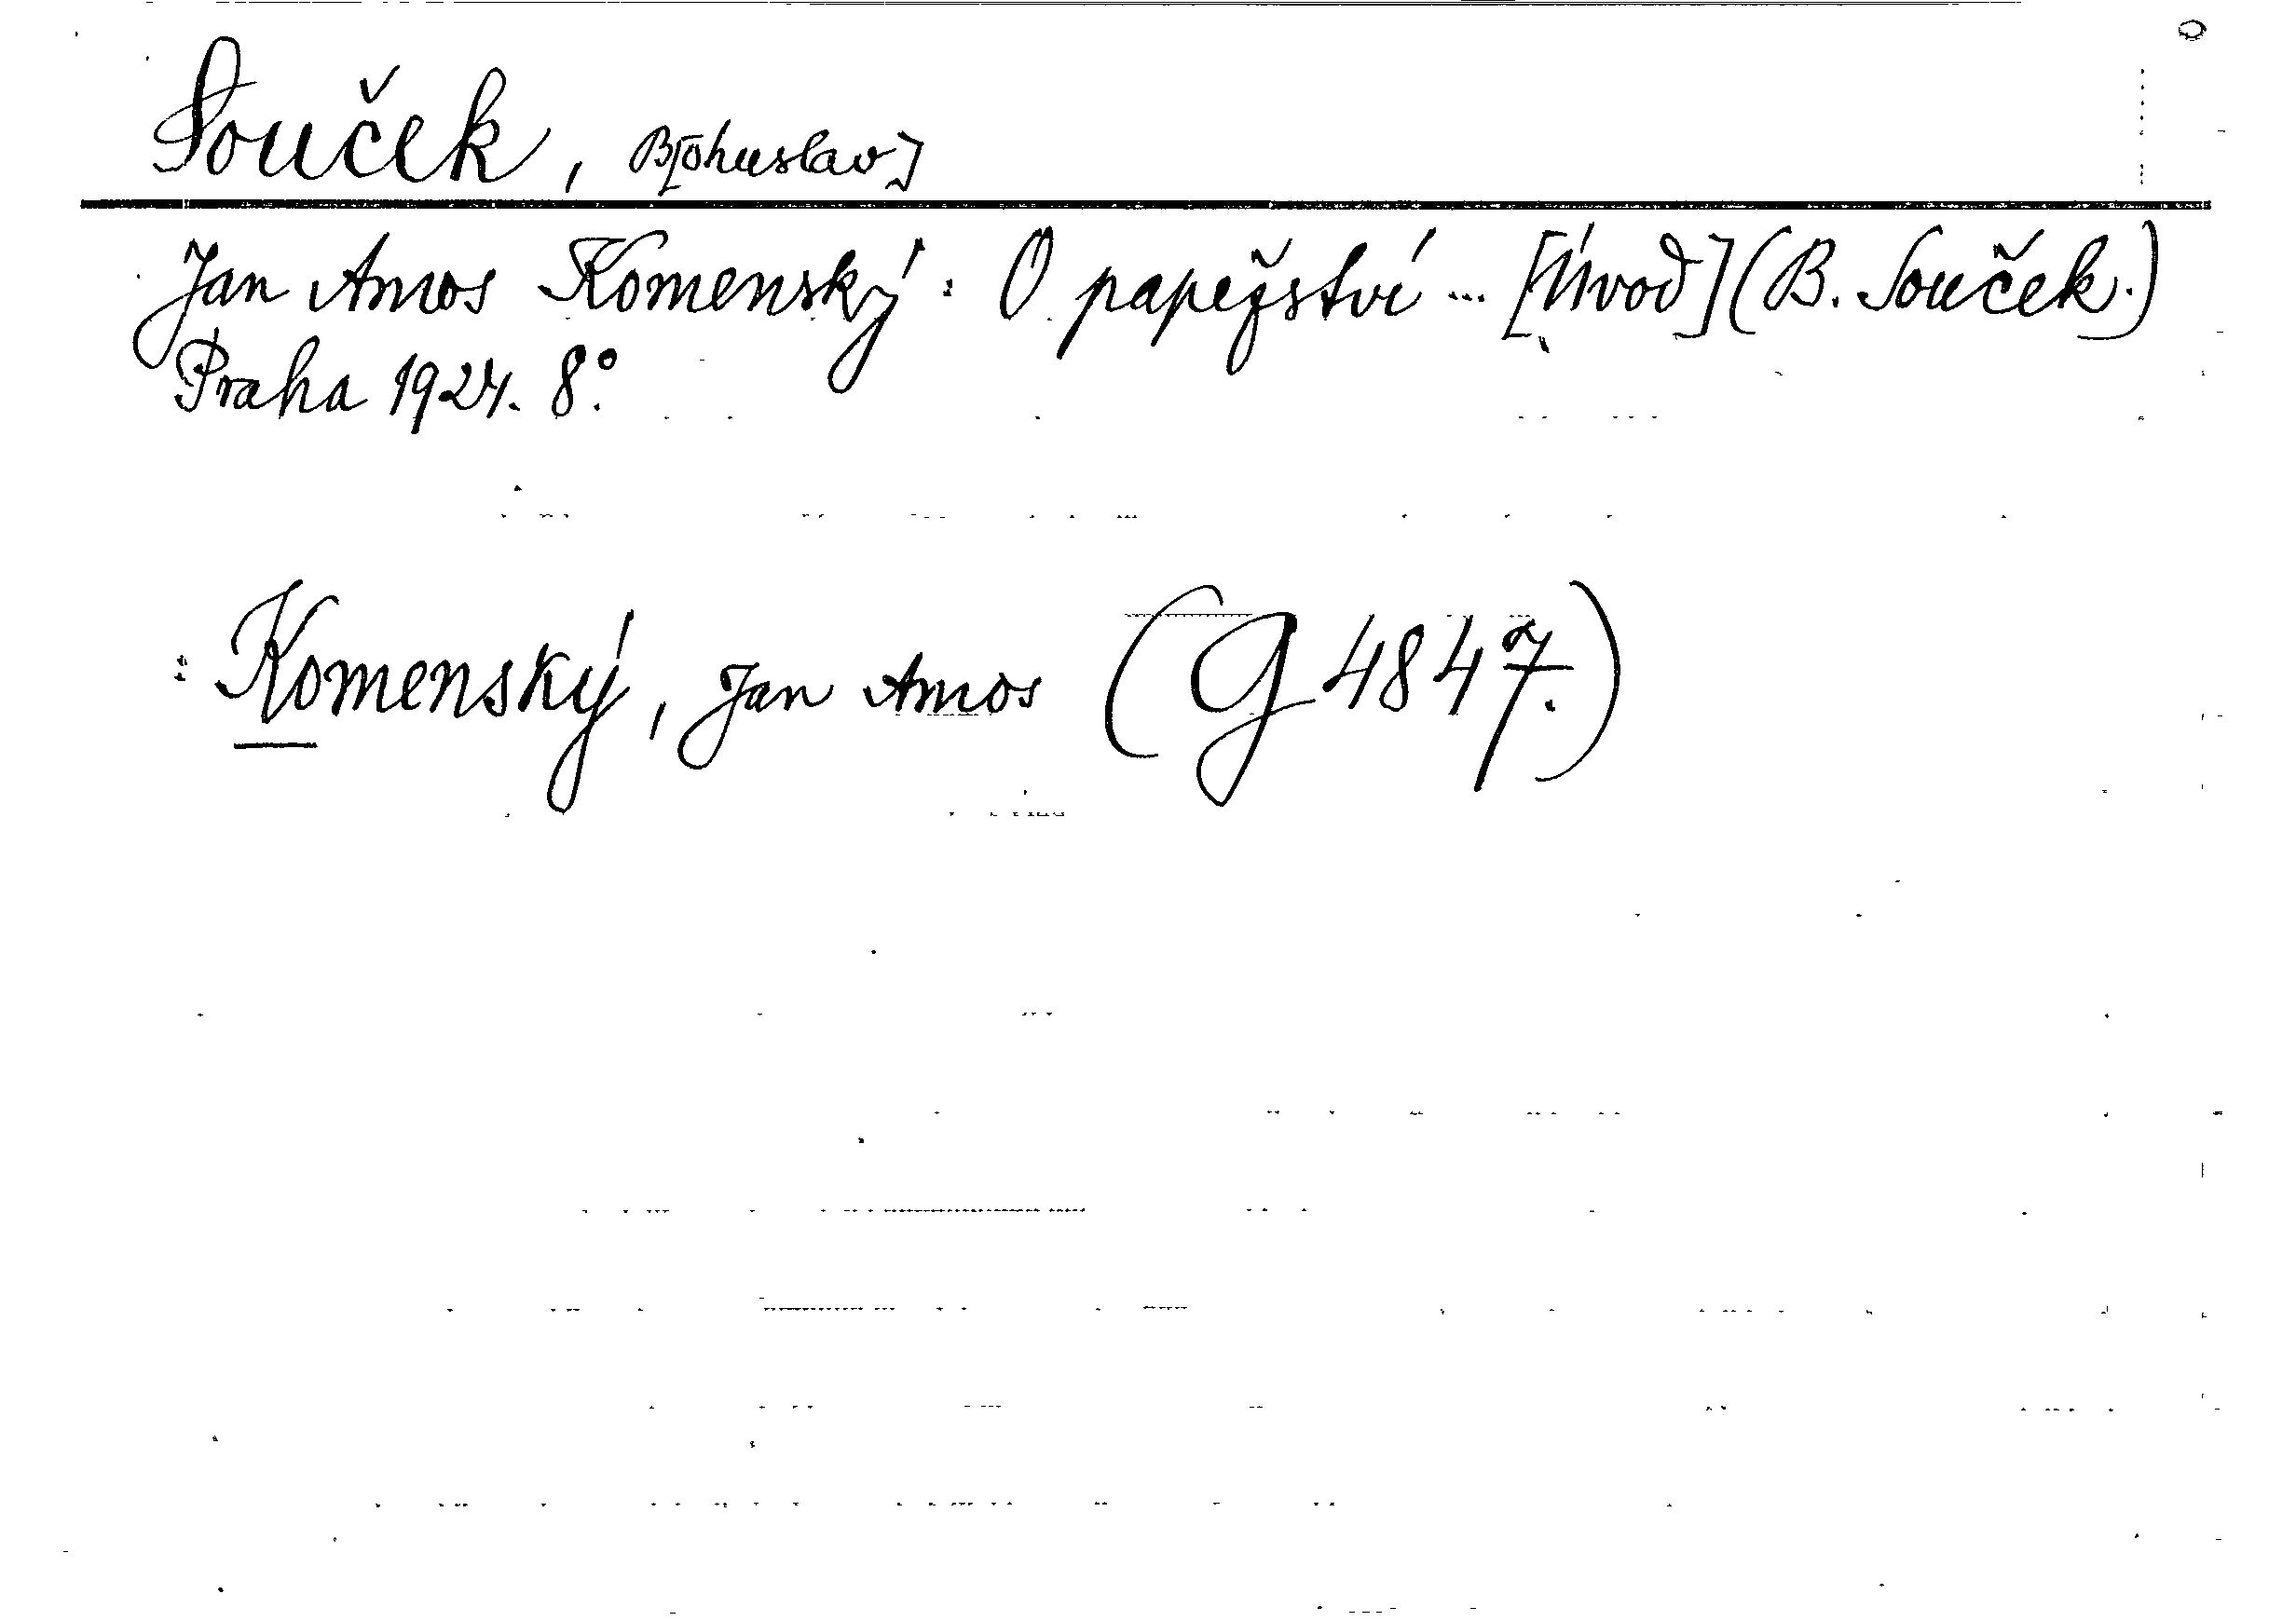 Souček, B[ohuslav]
Jan Amos Komenský: O papežství ... [Úvod] (B. Souček.)
Praha 1924. 8°.
: Komenský, Jan Amos (G 4847.)